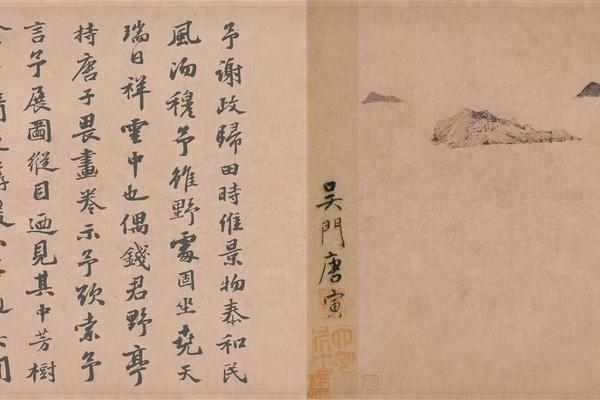 吳門唐寅
予謝政歸田時維景物泰和民
風沕穆予雖野處固坐堯天
瑞日祥雲中也偶錢君野亭
持唐子畏畫卷示予欵索予
言予展圖縱目迺見其中芳樹